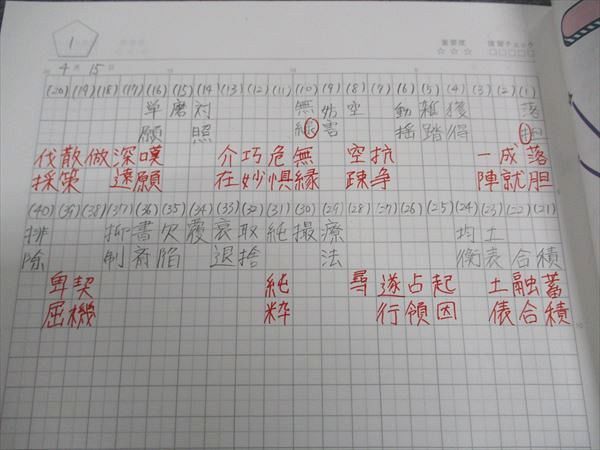 1
重要度 復習チェック
☆☆☆ □□□□□
4月15日
(20)(19)(18)(17)(16)(15)(14)(13)(12)(11)(10)(9)(8)(7)(6)(5)(4)(3)(2)(1)
単磨対 無妨空 動雑獲 落
願 照 縁害 揺踏得 胆
伐散做深嘆 介巧危無 空抗 一成落
採策 遠願 在妙惧縁 疎争 陣就胆
(40)(39)(38)(37)(36)(35)(34)(33)(32)(31)(30)(29)(28)(27)(26)(25)(24)(23)(22)(21)
排 折書欠覆哀取純撮療 均土
除 制斎陥 退捨 法 衡表合積
卑契 純 尋遂占起 土融蓄
屈機 粋 行領因 俵合積